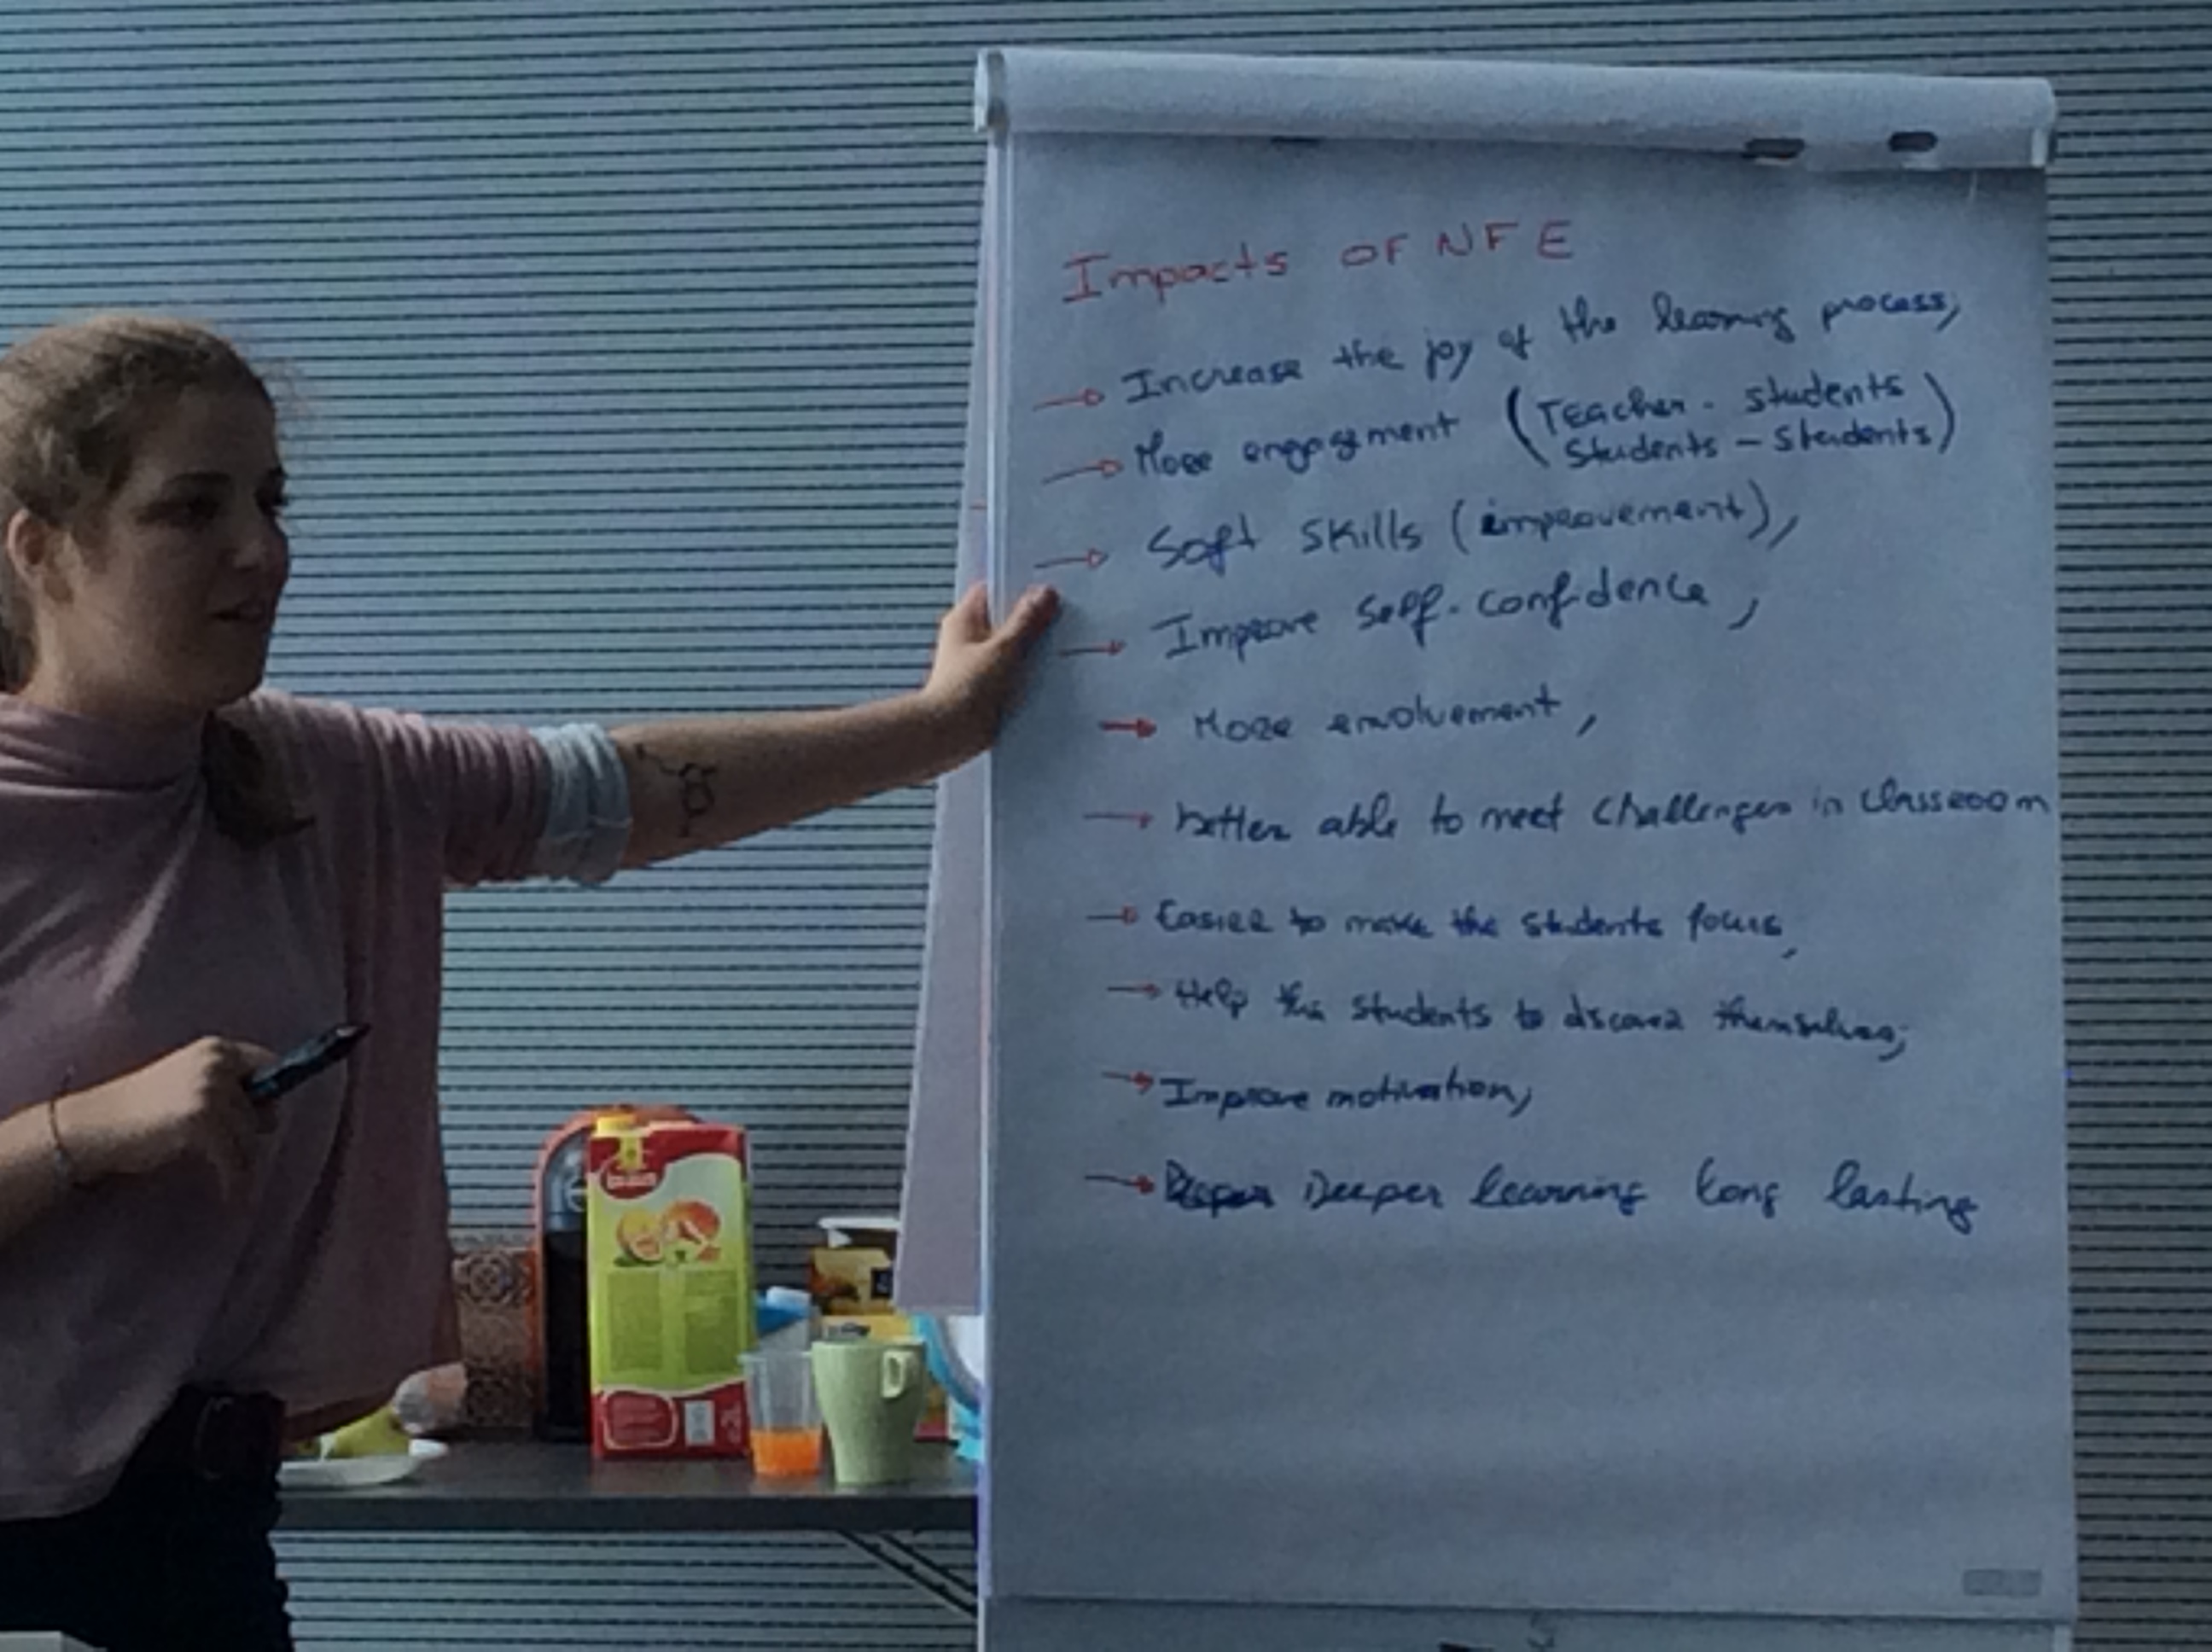 Impacts OF NFE
→ Increase the joy of the learning process,
→ More engagement (Teacher - students
Students - students)
→ Soft skills (improvement),
→ Improve self-confidence,
→ More envolvement,
→ better able to meet challenges in classroom
→ Easier to make the students focus,
→ Help the students to discover themselves;
→ Improve motivation;
→ Deeper learning long lasting